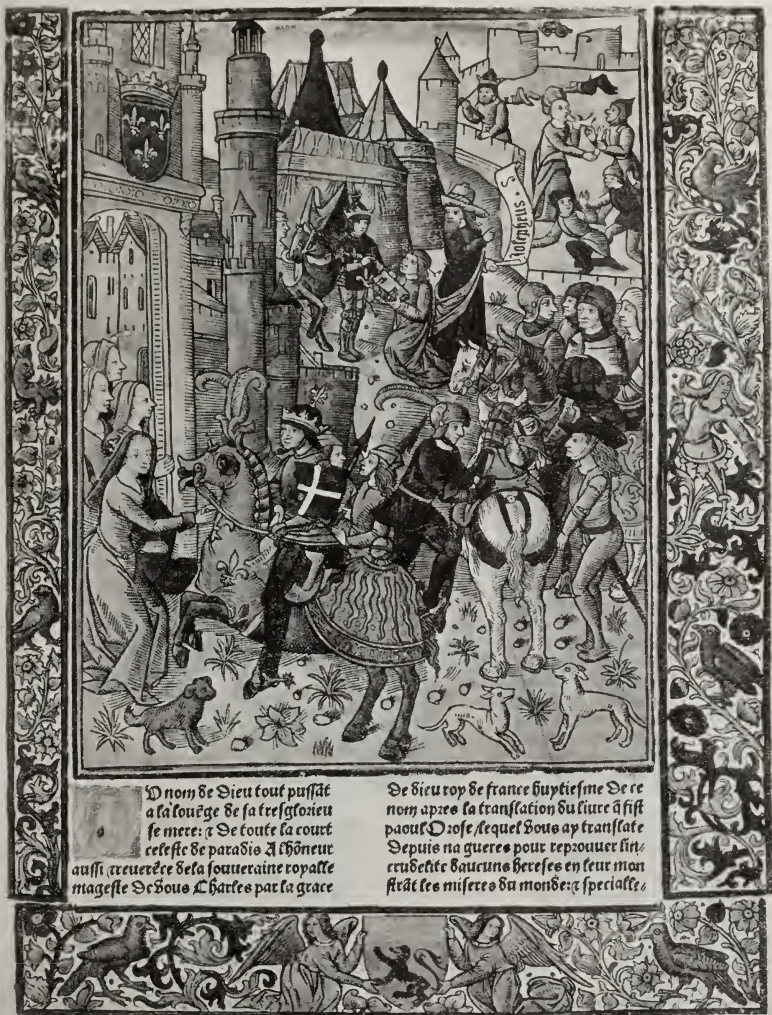 Josephus . S
O nom de Dieu tout pussāt
a la louēge de sa tresglorieu
se mere: ⁊ De toute la court
celeste de paradis A lhōneur
aussi ⁊reuerēce dela souueraine royalle
mageste De vous Charles par la grace
De dieu roy de france huytiesme De ce
nom apres la translation du liure q̄ fist
paoul Orose / lequel vous ay translate
Depuis na gueres pour reprouuer lin⸗
crudelite daucuns hereses en leur mon
strāt les miseres du monde: ⁊ specialle⸗